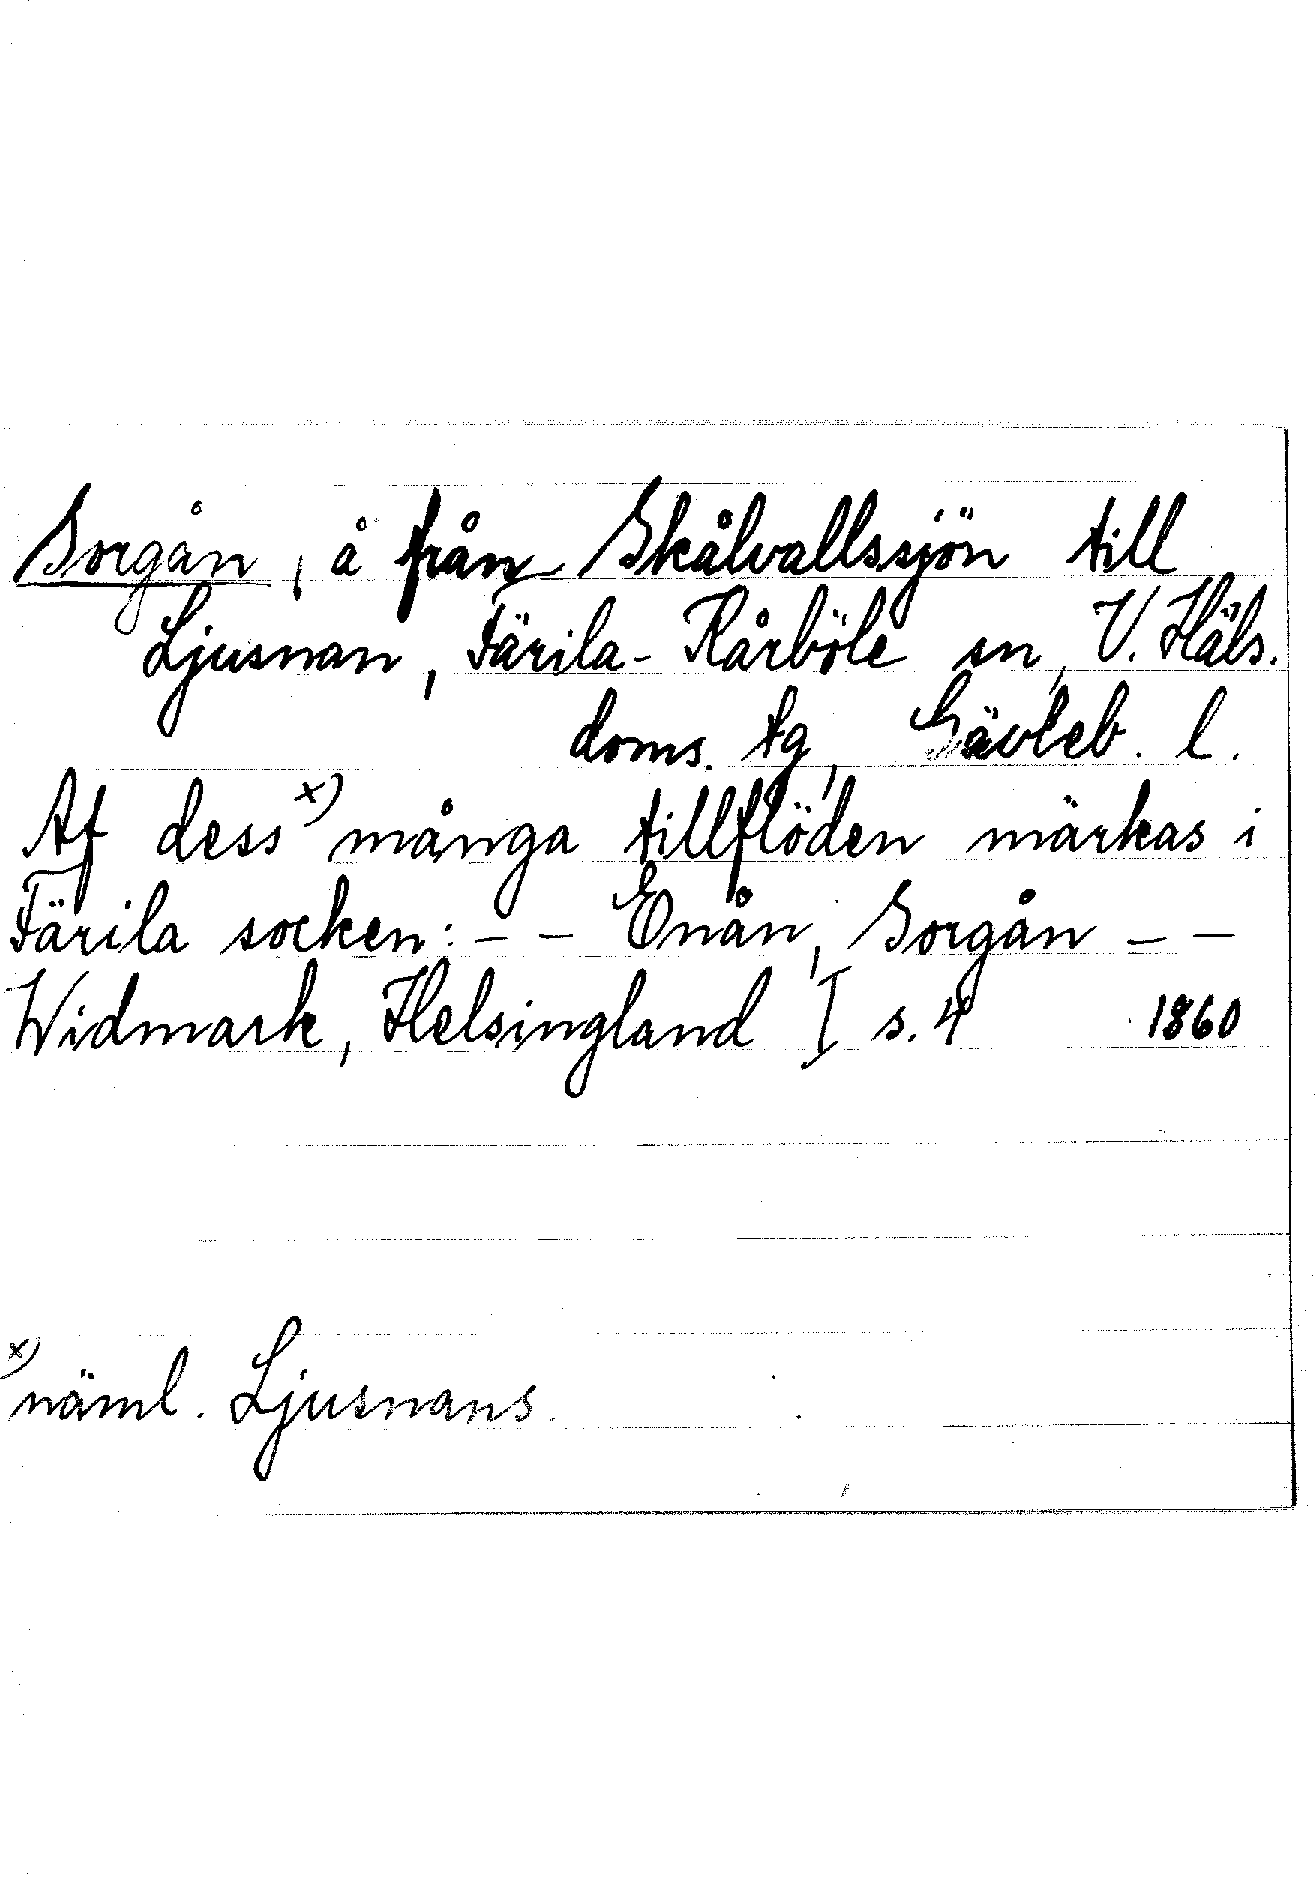 Sorgån, å från Skålvallssjön till
Ljusnan, Färila-Kårböle sn, V. Häls.
doms. tg, Gävleb. l.
Af dess x) många tillflöden märkas i
Färila socken: – – Enån, Sorgån – –
Widmark, Helsingland I s. 4 1860
x) näml. Ljusnans.